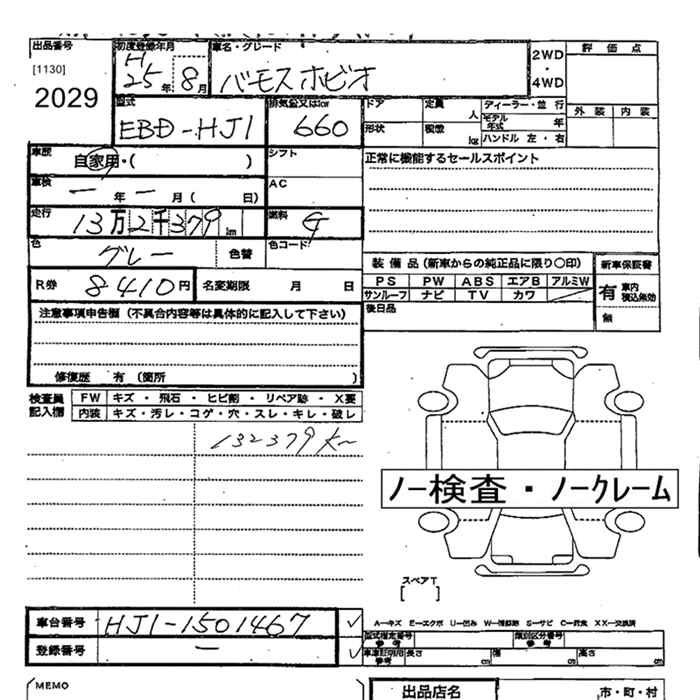 出品番号 初度登録年月 車名・グレード 評 価 点
[1130] H 25 年 8 月 バモスホビオ 2WD ・ 4WD
2029 外 装 内 装
型式 排気量又はkW ドア 定員 人 ディーラー・並 行
EBD-HJ1 660 形状 積数 kg モデル年式 年
ハンドル 左・右
車歴 自家用・( ) シフト 正常に機能するセールスポイント
車検 ー 年 ー 月 ( 日) AC
走行 13万2千379 km 燃料 G
色 グレー 色替 色コード
装 備 品 (新車からの純正品に限り〇印) 新車保証書
R券 8410円 名変期限 月 日 PS PW ABS エアB アルミW 有 車内 税込無効
サンルーフ ナビ TV カワ
注意事項申告欄 (不具合内容等は具体的に記入して下さい) 後日品 無
修復歴 有 (箇所 )
検査員記入欄 FW キズ ・ 飛石 ・ ヒビ割 ・ リペア跡 ・ X要
内装 キズ・汚レ・コゲ・穴・スレ・キレ・破レ
132379km
ノー検査・ノークレーム
スペアT
[ ]
車台番号 HJ1-1501467 ✓ A−キズ E−エクボ U−凹み W−補修跡 S−サビ C−腐食 XX−交換済
型式指定番号 参考 類別区分番号 参考
登録番号 ー ✓ 車庫証明用参考 長さ cm 幅 cm 高さ cm
MEMO 出品店名 市・町・村